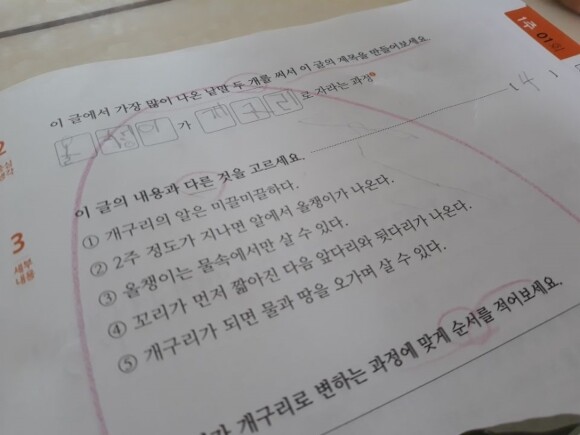 1주 01회
이 글에서 가장 많이 나온 낱말 두 개를 써서 이 글의 제목을 만들어보세요.
올챙이가 개구리로 자라는 과정
2
중심
생각
3
세부
내용
이 글의 내용과 다른 것을 고르세요. ( 4 )
① 개구리의 알은 미끌미끌하다.
② 2주 정도가 지나면 알에서 올챙이가 나온다.
③ 올챙이는 물속에서만 살 수 있다.
④ 꼬리가 먼저 짧아진 다음 앞다리와 뒷다리가 나온다.
⑤ 개구리가 되면 물과 땅을 오가며 살 수 있다.
개구리로 변하는 과정에 맞게 순서를 적어보세요.